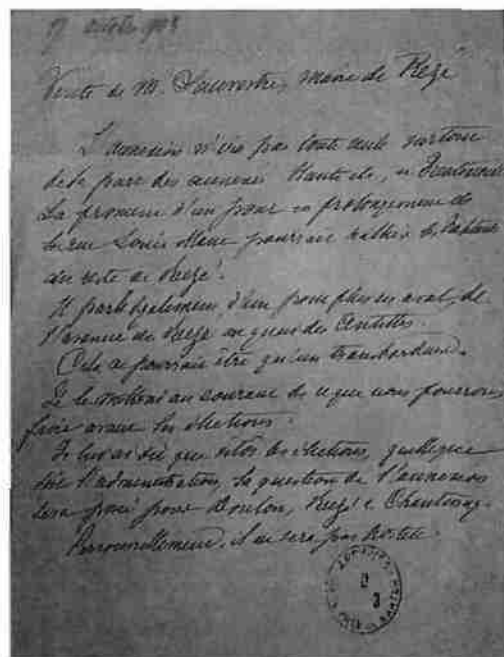 17 octobre 1908
Visite de M. Sauvestre, maire de Rezé
L'annexion n'ira pas toute seule surtout
de la part des annexés Haute Ile, et Trentemoult
La promesse d'un pont en prolongement de
la rue Louis Blanc pourrait
du reste de Rezé.
Il parle également d'un pont plus en aval, de
l'avenue de Rezé au quai des Antilles.
Cela ne pourrait être qu'un transbordeur.
Je le mettrai au courant de ce que nous pourrons
faire avant les élections.
Je lui ai dit que sitôt les élections, quelle que
soit l'administration, la question de l'annexion
sera posée pour Doulon, Rezé et Chantenay.
Personnellement, il ne sera pas hostile.
ARCHIVES
VILLE DE NANTES